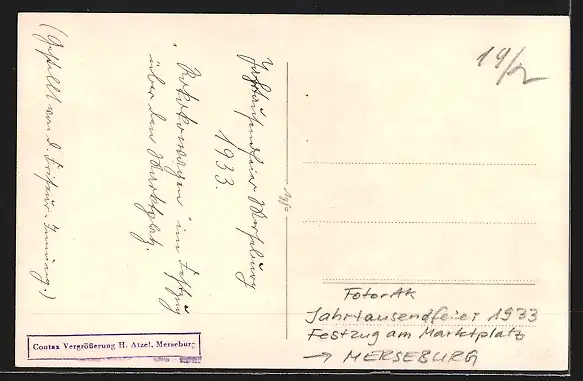 Jahrtausendfeier Merseburg
1933.
"Rokokowagen" im Festzug
über den Marktplatz.
(Gestellt von d. Friseur-Innung.)
Contax Vergrößerung H. Atzel, Merseburg
FotoAK
Jahrtausendfeier 1933
Festzug am Marktplatz
→ MERSEBURG